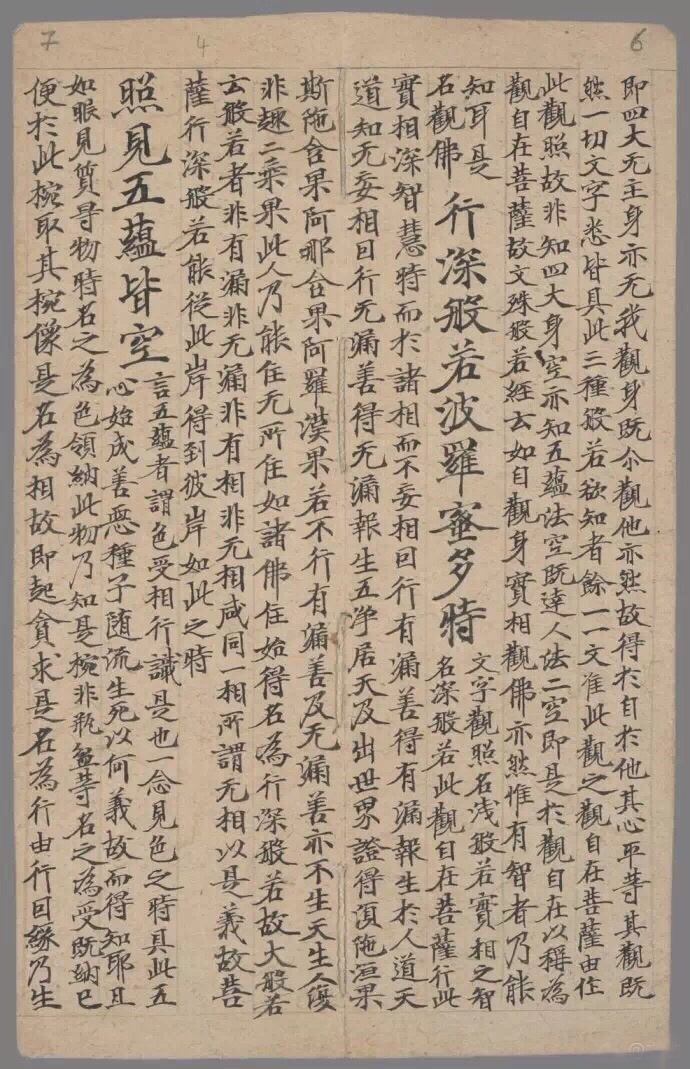 6
4
7
即四大无主身亦无我觀身既尒觀他亦然故得於自於他其心平等其觀既
然一切文字悉皆具此三種般若欲知者餘一一文准此觀之觀自在菩薩由住
此觀照故非知四大身空亦知五蘊法空既達人法二空即是於觀自在以稱為
觀自在菩薩故文殊般若經云如自觀身實相觀佛亦然惟有智者乃能
知耳是
名觀佛
行深般若波羅蜜多時
文字觀照名浅般若實相之智
名深般若此觀自在菩薩行此
實相深智慧時而於諸相而不妄相囙行有漏善得有漏報生於人道天
道知无妄相囙行无漏善得无漏報生五净居天及出世界證得湏陁洹果
斯陁含果阿那含果阿羅漢果若不行有漏善及无漏善亦不生天生人復
非趣二乘果此人乃能住无所住如諸佛住始得名為行深般若故大般若
云般若者非有漏非无漏非有相非无相咸同一相所謂无相以是義故菩
薩行深般若能從此岸得到彼岸如此之時
照見五蘊皆空
言五蘊者謂色受相行識是也一念見色之時具此五
心始成善惡種子随流生死以何義故而得知耶且
如眼見質㝵物時名之為色領納此物乃知是椀非瓶盆等名之為受既納已
便於此椀取其椀像是名為相故即起貪求是名為行由行囙緣乃生